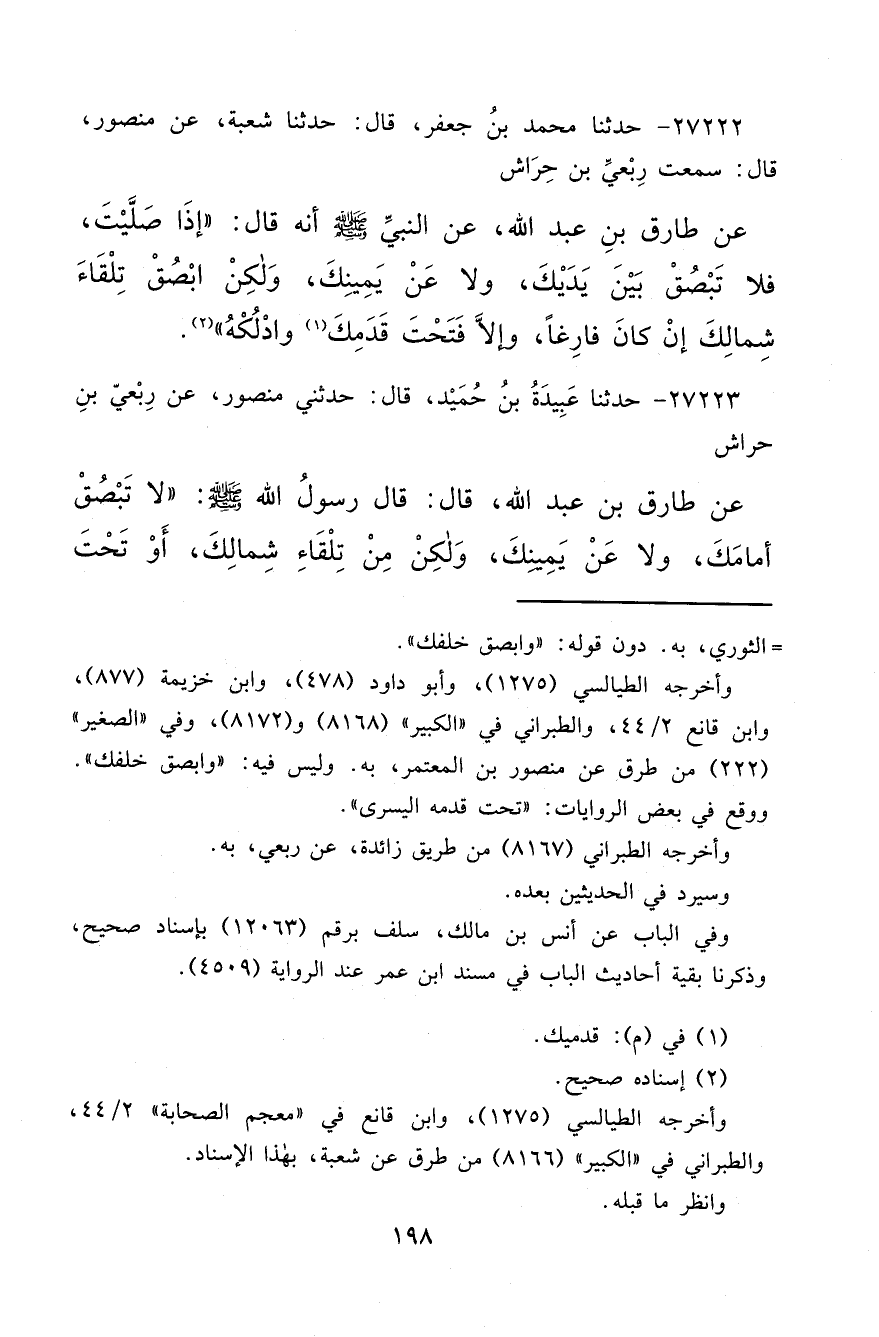 ٢٧٢٢٢- حدثنا محمد بنُ جعفر، قال: حدثنا شعبة، عن منصور،
قال: سمعت رِبْعيِّ بن حِرَاش
عن طارق بنِ عبد الله، عن النبيِّ ﷺ أنه قال: «إذَا صَلَّيْتَ،
فلا تَبْصُقْ بَيْنَ يَدَيْكَ، ولا عَنْ يَمِينِكَ، وَلٰكِنْ ابْصُقْ تِلْقَاءَ
شِمالِكَ إنْ كانَ فارِغاً، وإلاَّ فَتَحْتَ قَدَمِكَ(١) وادْلُكْهُ»(٢).
٢٧٢٢٣- حدثنا عَبِيدَةُ بنُ حُمَيْد، قال: حدثني منصور، عن رِبْعيّ بنِ
حراش
عن طارق بن عبد الله، قال: قال رسولُ الله ﷺ: «لا تَبْصُقْ
أمامَكَ، ولا عَنْ يَمِينِكَ، وَلٰكِنْ مِنْ تِلْقَاءِ شِمالِكَ، أَوْ تَحْتَ
= الثوري، به. دون قوله: «وابصق خلفك».
وأخرجه الطيالسي (١٢٧٥)، وأبو داود (٤٧٨)، وابن خزيمة (٨٧٧)،
وابن قانع ٤٤/٢، والطبراني في «الكبير» (٨١٦٨) و(٨١٧٢)، وفي «الصغير»
(٢٢٢) من طرق عن منصور بن المعتمر، به. وليس فيه: «وابصق خلفك».
ووقع في بعض الروايات: «تحت قدمه اليسرى».
وأخرجه الطبراني (٨١٦٧) من طريق زائدة، عن ربعي، به.
وسيرد في الحديثين بعده.
وفي الباب عن أنس بن مالك، سلف برقم (١٢٠٦٣) بإسناد صحيح،
وذكرنا بقية أحاديث الباب في مسند ابن عمر عند الرواية (٤٥٠٩).
(١) في (م): قدميك.
(٢) إسناده صحيح.
وأخرجه الطيالسي (١٢٧٥)، وابن قانع في «معجم الصحابة» ٤٤/٢،
والطبراني في «الكبير» (٨١٦٦) من طرق عن شعبة، بهٰذا الإسناد.
وانظر ما قبله.
١٩٨